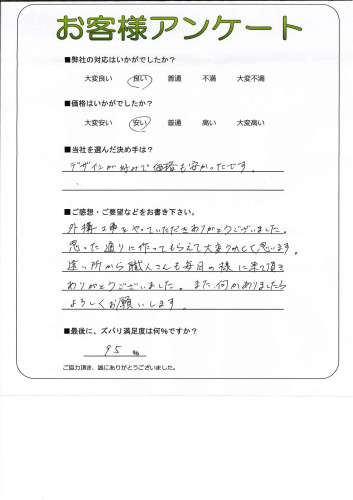 お客様アンケート
■弊社の対応はいかがでしたか？
大変良い 良い 普通 不満 大変不満
■価格はいかがでしたか？
大変安い 安い 普通 高い 大変高い
■当社を選んだ決め手は？
デザインが好みで価格も安かったです。
■ご感想・ご要望などをお書き下さい。
外構工事をやっていただきありがとうございました。
思った通りに作ってもらえて大変うれしく思います。
遠い所から職人さんも毎日の様に来て頂き
ありがとうございました。また何かありましたら
よろしくお願いします。
■最後に、ズバリ満足度は何％ですか？
95 ％
ご協力頂き、誠にありがとうございました。